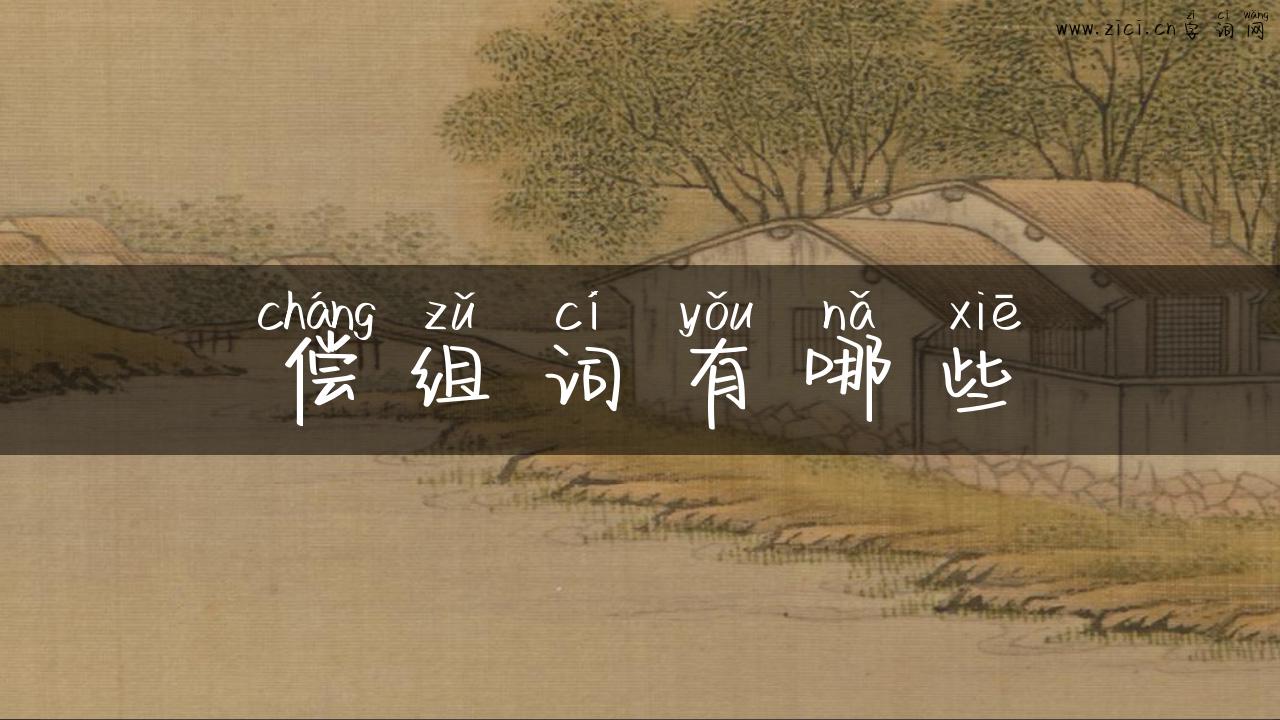 zì cí wǎng
www.zici.cn字词网
cháng zǔ cí yǒu nǎ xiē
偿组词有哪些